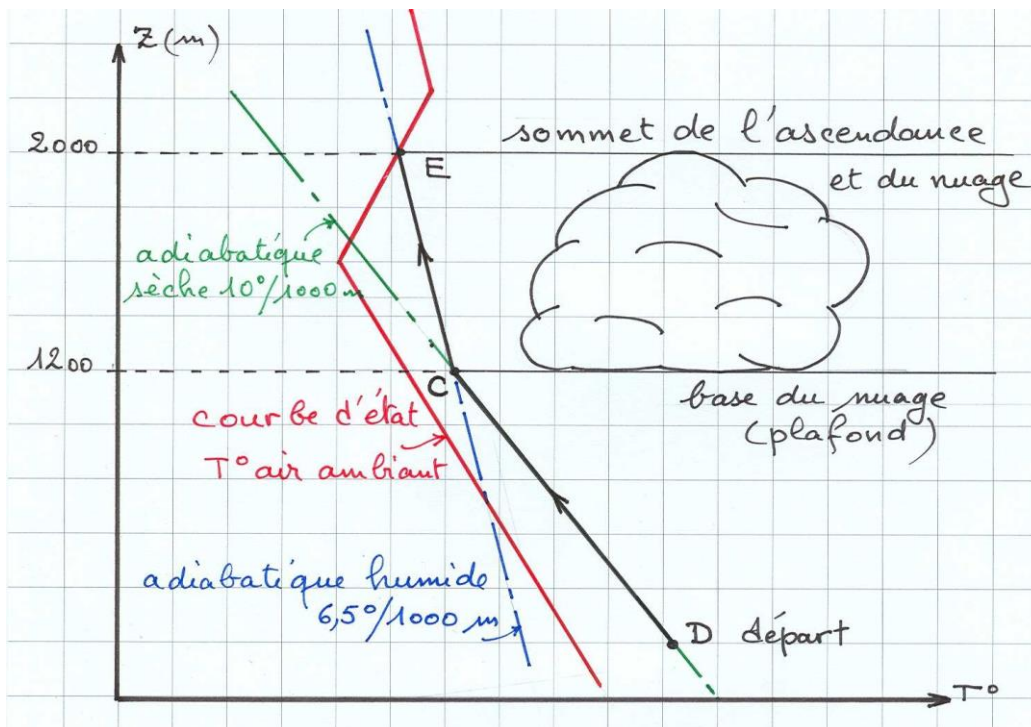 Z (m)
2000
sommet de l'ascendance
et du nuage
E
adiabatique
sèche 10°/1000 m
1200
C
base du nuage
(plafond)
courbe d'état
T° air ambiant
adiabatique humide
6,5°/1000 m
D départ
T°